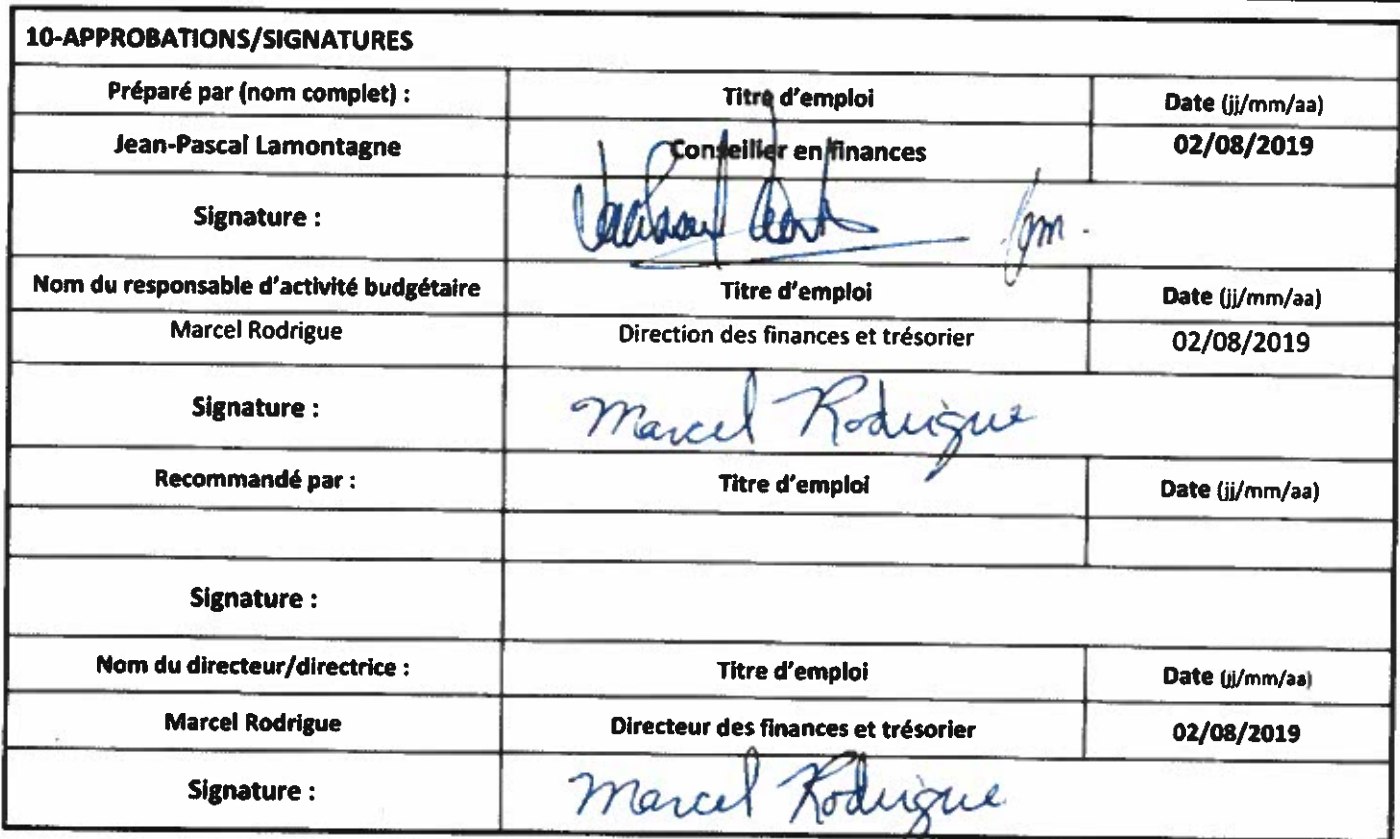 10-APPROBATIONS/SIGNATURES
Préparé par (nom complet) : Titre d'emploi Date (jj/mm/aa)
Jean-Pascal Lamontagne Conseiller en finances 02/08/2019
Signature :
Nom du responsable d'activité budgétaire Titre d'emploi Date (jj/mm/aa)
Marcel Rodrigue Direction des finances et trésorier 02/08/2019
Signature : Marcel Rodrigue
Recommandé par : Titre d'emploi Date (jj/mm/aa)
Signature :
Nom du directeur/directrice : Titre d'emploi Date (jj/mm/aa)
Marcel Rodrigue Directeur des finances et trésorier 02/08/2019
Signature : Marcel Rodrigue